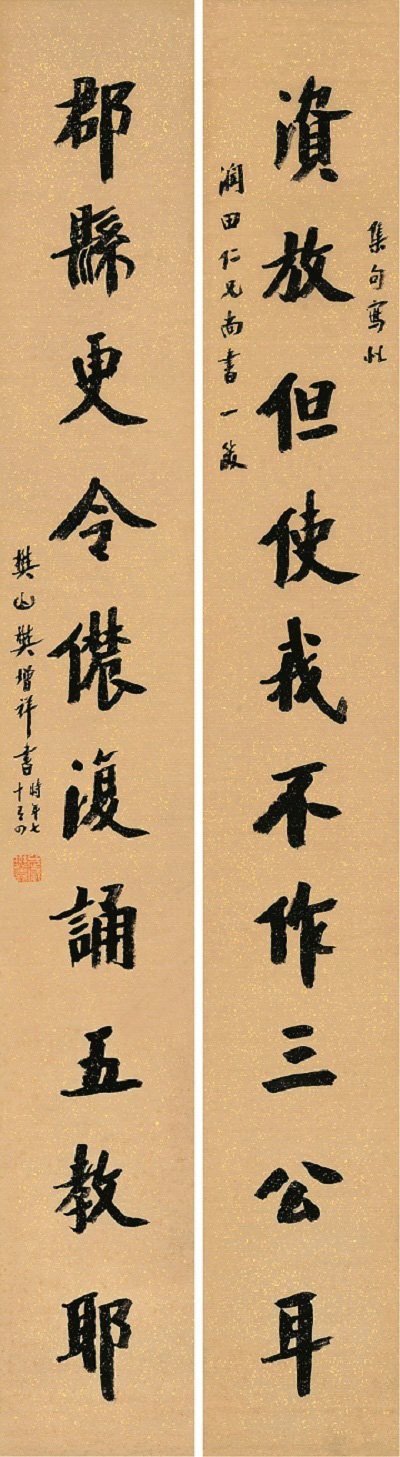 集句寫似
資放但使我不作三公耳
潤田仁兄尚書一粲
郡縣更令儂復誦五教耶
樊山樊增祥書時年七
十有四